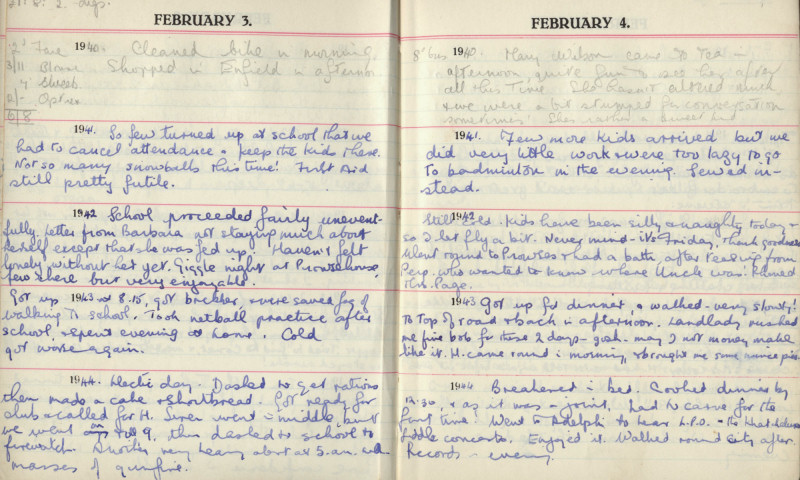 FEBRUARY 3.
2' Fare 1940. Cleaned bike in morning.
3/11 Blouse Shopped in Enfield in afternoon
4' Sweets
6/8
1941. So few turned up at school that we
had to cancel attendance & keep the kids there.
Not so many snowballs this time! First Aid
still pretty futile.
1942 School proceeded fairly unevent-
fully. Letter from Barbara not staying much about
herself except that she was fed up. Haven't felt
lonely without her yet. Giggle night at Prowsehouse,
few there but very enjoyable.
Got up 1943 at 8.15, got brekker, & were saved fag of
walking to school. Took netball practice after
school, & spent evening at home. Cold
got worse again.
1944. Hectic day. Dashed to get rations
then made a cake & shortbread. Got ready for
club & called for H. Siren went in middle, but
we went on till 9, then dashed to school to
firewatch. Another very heavy about at 5 a.m. with
masses of gunfire.
FEBRUARY 4.
8' bus 1940. Mary Watson came to tea in
afternoon, quite fun to see her after
all this time. She hasn't altered much
& we were a bit stumped for conversation
sometimes! She's rather a
1941. Few more kids arrived but we
did very little work & were too lazy to go
to badminton in the evening. Sewed in-
stead.
1942
Still cold. Kids have been silly & naughty today &
so I let fly a bit. Never mind - it's Friday, thank goodness
Went round to Prowses & had a bath, after tea up from
Perp. who wanted to know where Uncle was. Phoned
this page.
1943 Got up for dinner, & walked - very shortly!
to top of road & back in afternoon. Landlady rushed
me five bob for these 2 days - gosh. may I not money make
like it. H. came round in morning, & brought me some mince pies.
1944 Breakened in bed. Cooked dinner by
12.30, & as it was a joint, had to carve for the
first time! Went to Adelphi to hear L.P.O. - the
little concerto. Enjoyed it. Walked round city after.
Records in evening.